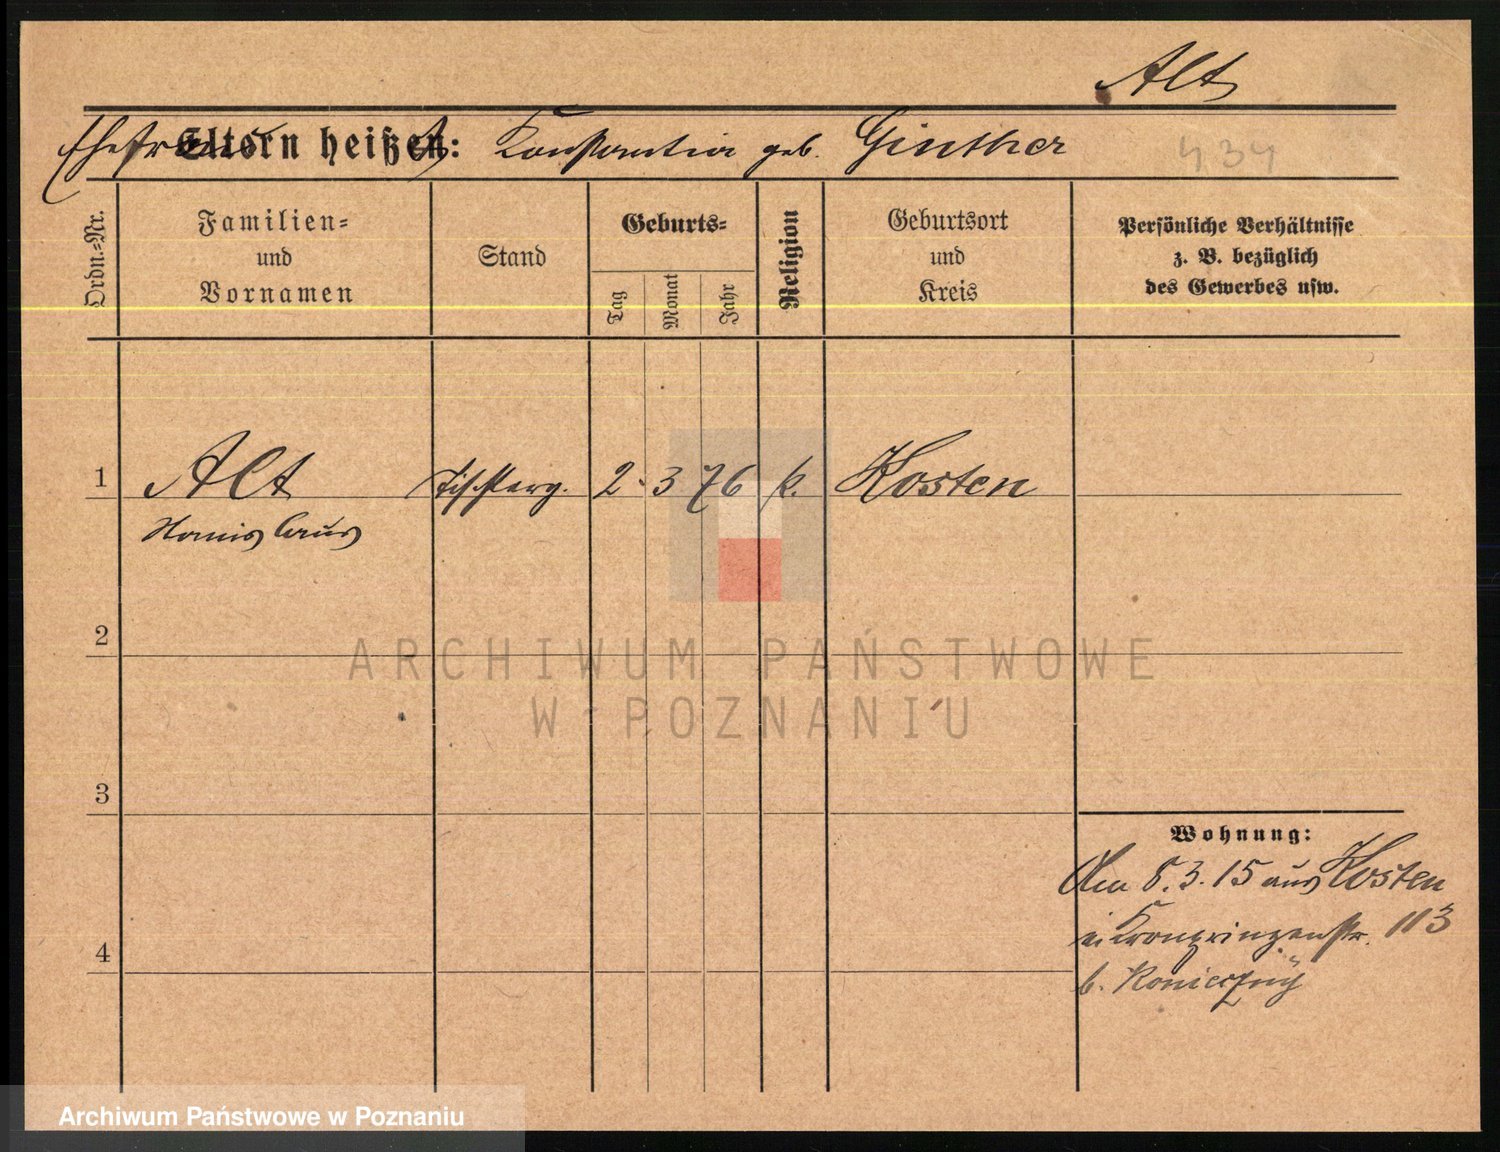 Alt
Ehefrau
Eltern heißen: Konstantia geb. Ginther
434
Ordn.-Nr.
Familien-
und
Vornamen
Stand
Geburts-
Tag
Monat
Jahr
Religion
Geburtsort
und
Kreis
Persönliche Verhältnisse
z. B. bezüglich
des Gewerbes usw.
1 Alt 2. 3 76 k. Kosten
Stanislaus
2
ARCHIWUM PAŃSTWOWE
W POZNANIU
3
Wohnung:
Am 8.3.15 aus Kosten
Kronprinzenstr. 113
4
b. Konieczny
Archiwum Państwowe w Poznaniu